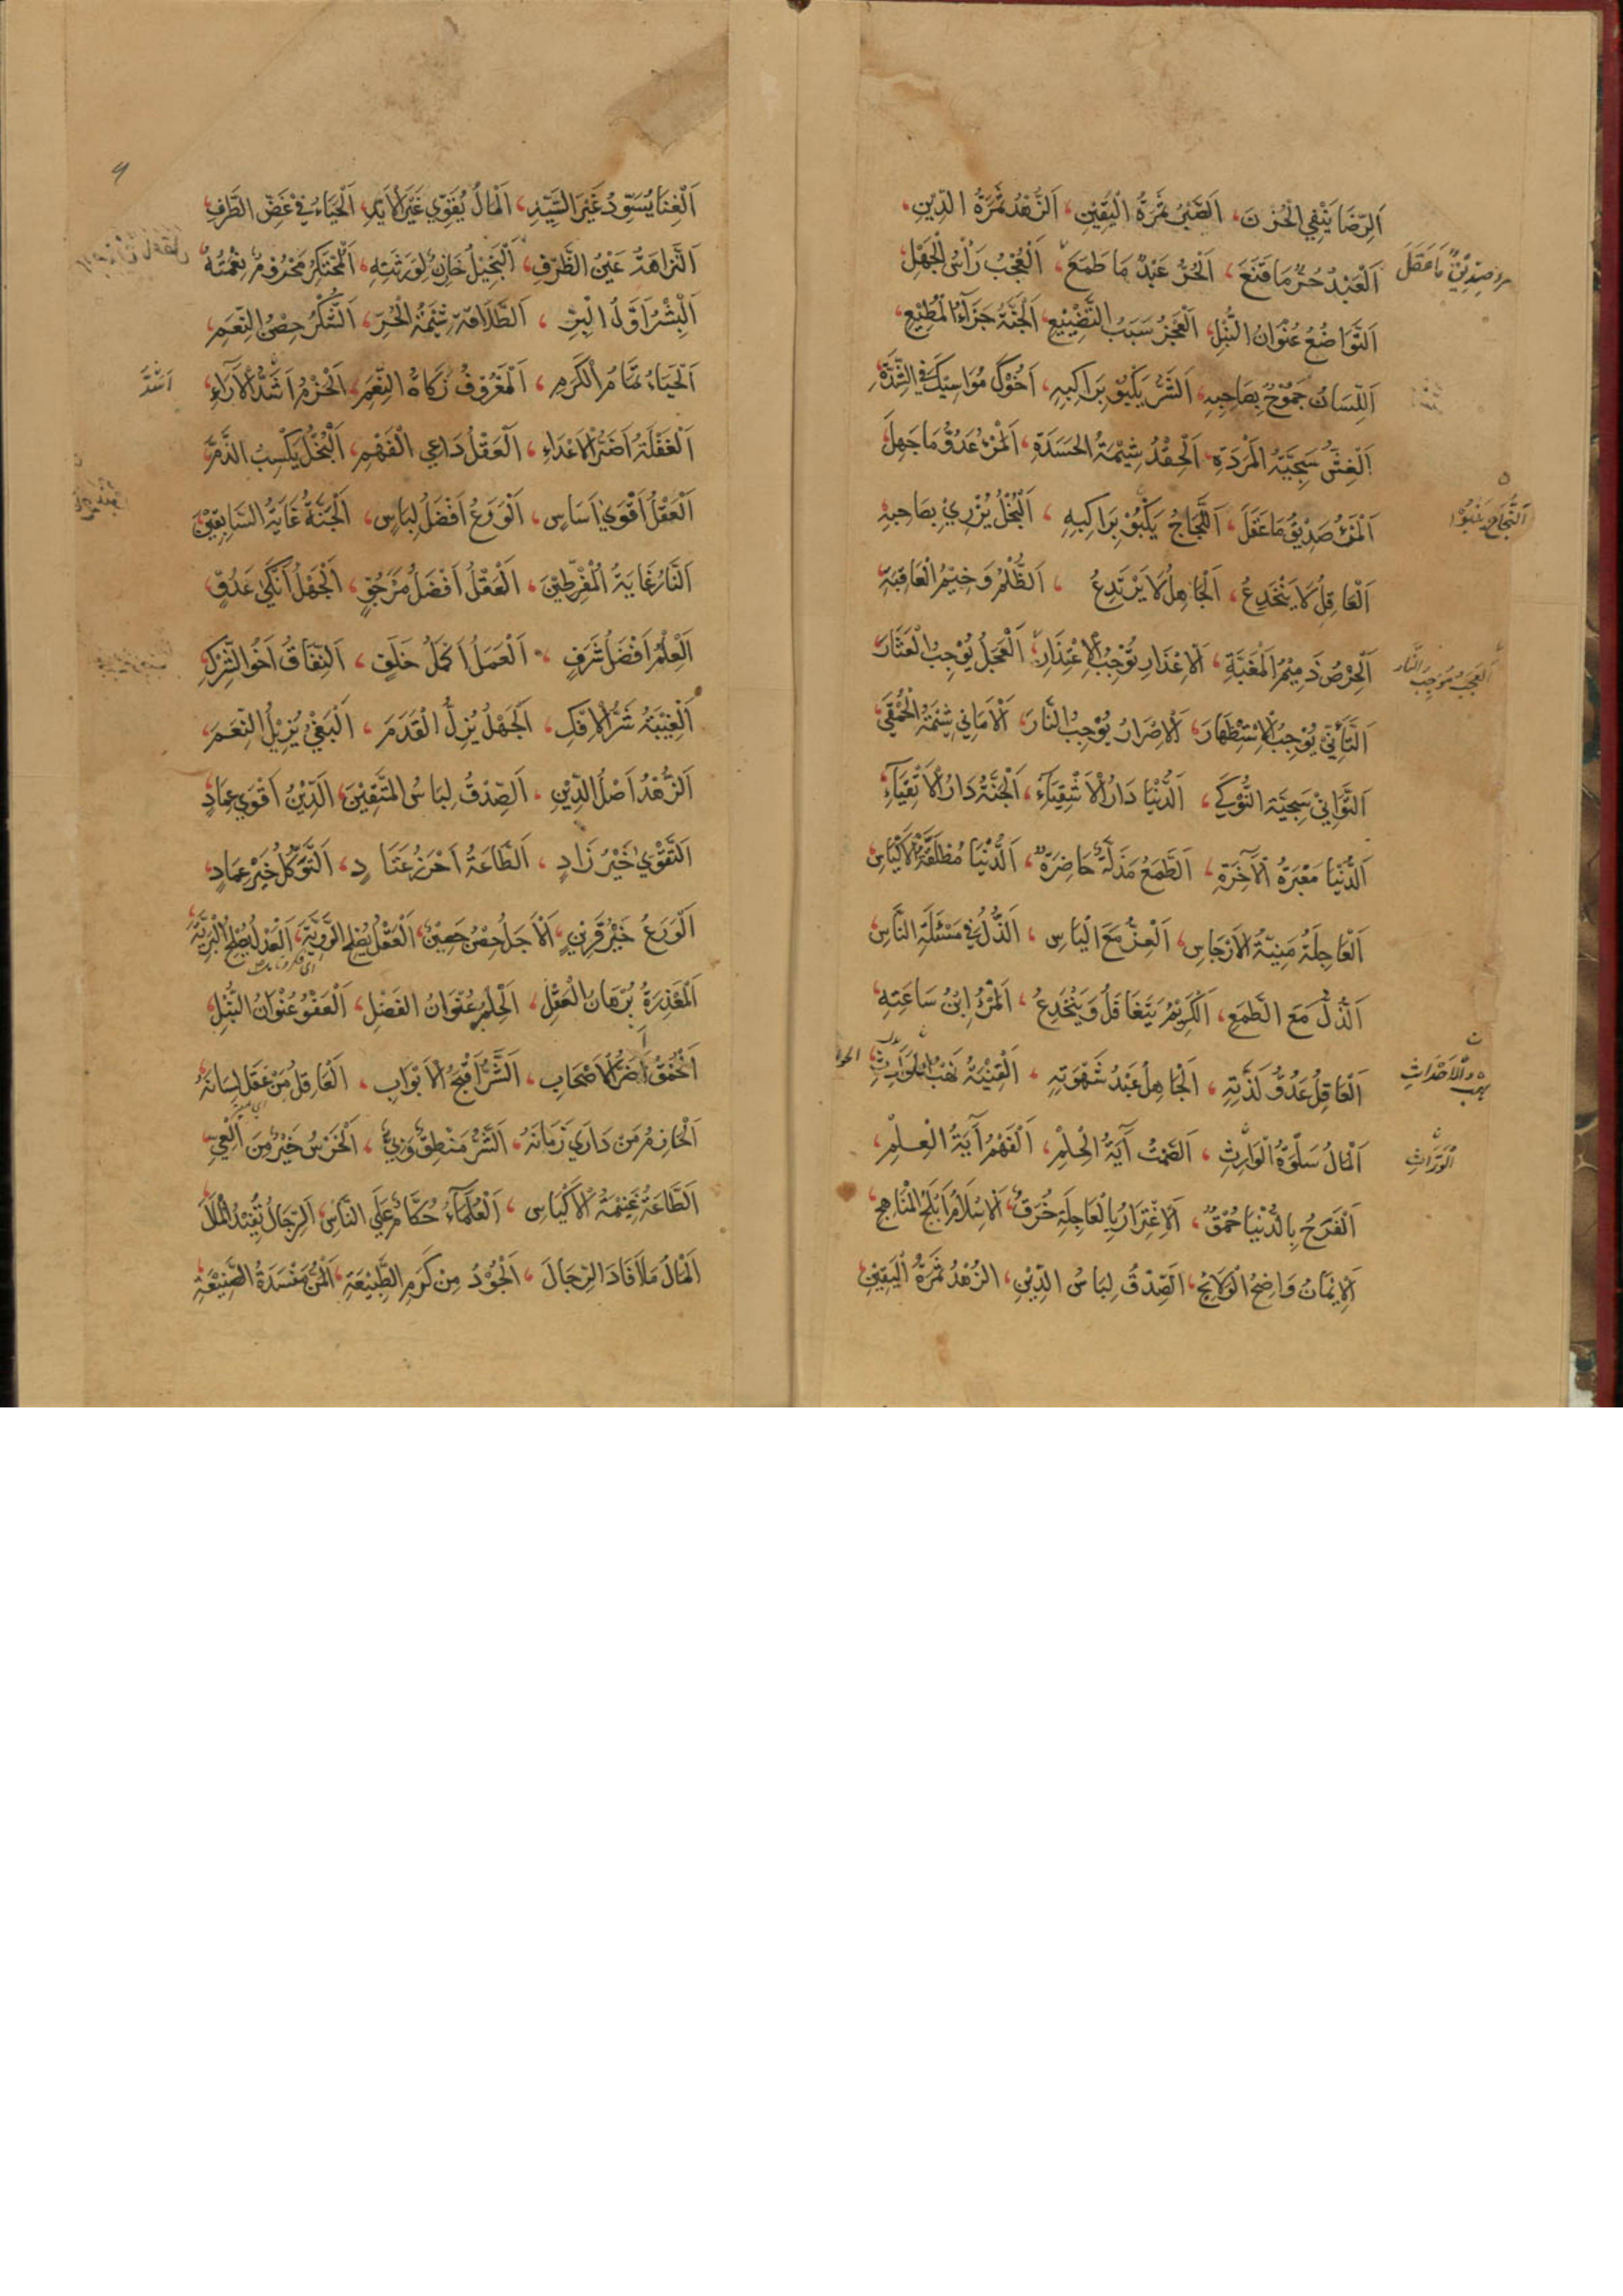 اَلرِّضَا يَنْفِي الْحُزْنَ، اَلصَّبْرُ ثَمَرَةُ الْيَقِيْنِ، اَلزُّهْدُ ثَمَرَةُ الدِّيْنِ،
اَلْعَبْدُ حُرٌّ مَا قَنَعَ، اَلْحُرُّ عَبْدٌ مَا طَمَعَ، اَلْعُجْبُ رَأْسُ الْجَهْلِ
اَلتَّوَاضُعُ عُنْوَانُ النُّبْلِ، اَلْعَجْزُ سَبَبُ التَّضْيِيْعِ، اَلْجَنَّةُ جَزَآءُ الْمُطِيْعِ،
اَللِّسَانُ جَمُوْحٌ بِصَاحِبِهِ، اَلشَّرُّ يَكْبُوْ بِرَاكِبِهِ، اَخُوْكَ مُوَاسِيْكَ فِي الشِّدَّةِ،
اَلْغِشُّ سَجِيَّةُ الْمَرَدَةِ، اَلْحِقْدُ شِيْمَةُ الْحَسَدَةِ، اَلْمَرْءُ عَدُوُّ مَا جَهِلَ
اَلْمَرْءُ صَدِيْقُ مَا عَقَلَ، اَللَّجَاجُ يَكْبُوْ بِرَاكِبِهِ، اَلْبُخْلُ يُزْرِيْ بِصَاحِبِهِ
اَلْعَاقِلُ لَا يَنْخَدِعُ، اَلْجَاهِلُ لَا يَرْتَدِعُ، اَلظُّلْمُ وَخِيْمُ الْعَاقِبَةِ
اَلْحِرْصُ ذَمِيْمُ الْمَغَبَّةِ، اَلْاِعْذَارُ يُوْجِبُ الْاِعْتِذَارَ، اَلْعَجَلُ يُوْجِبُ الْعِثَارَ
اَلتَّأَنِّيْ يُوْجِبُ الْاِسْتِظْهَارَ، اَلْاِصْرَارُ يُوْجِبُ النَّارَ، اَلْاَمَانِي شِيْمَةُ الْحَمْقَي
اَلتَّوَانِيْ سَجِيَّةُ النَّوْكَي، اَلدُّنْيَا دَارُ الْاَشْقِيَآءِ، اَلْجَنَّةُ دَارُ الْاَتْقِيَآءِ
اَلدُّنْيَا مَعْبَرَةُ الْآخِرَةِ، اَلطَّمَعُ مَذَلَّةٌ حَاضِرَةٌ، اَلدُّنْيَا مُطَلَّقَةُ الْاَكْيَاسِ
اَلْعَاجِلَةُ مُنْيَةُ الْاَرْجَاسِ، اَلْعِزُّ مَعَ الْيَاسِ، اَلذُّلُّ فِيْ مَسْئَلَةِ النَّاسِ
اَلذُّلُّ مَعَ الطَّمَعِ، اَلْكَرِيْمُ يَتَغَافَلُ وَيَنْخَدِعُ، اَلْمَرْءُ ابْنُ سَاعَتِهِ
اَلْعَاقِلُ عَدُوُّ لَذَّتِهِ، اَلْجَاهِلُ عَبْدُ شَهْوَتِهِ، اَلْقِنْيَةُ نَهْبُ الْحَوَادِثِ
اَلْمَالُ سَلْوَةُ الْوَارِثِ، اَلصَّمْتُ آيَةُ الْحِلْمِ، اَلْفَهْمُ آيَةُ الْعِلْمِ،
اَلْفَرَحُ بِالدُّنْيَا حُمْقٌ، اَلْاِغْتِرَارُ بِالْعَاجِلَةِ خُرْقٌ، اَلْاِسْلَامُ اَبْلَجُ الْمَنَاهِجِ
اَلْاِيْمَانُ وَاضِحُ الْوَلَايِجِ، اَلصِّدْقُ لِبَاسُ الدِّيْنِ، اَلزُّهْدُ ثَمَرَةُ الْيَقِيْنِ
صِدِّيْقٌ مَا عَقَلَ
اَشَدَّ
اَلْعُجْبُ مُوْجِبُ النَّارِ
نَهْبُ الْاَحْدَاثِ
اَلْوَرَّاثِ
اَلْغِنَا يُسَوِّدُ غَيْرَ السَّيِّدِ، اَلْمَالُ يُقَوِّي غَيْرَ الْاَيِّدِ، اَلْحَيَاءُ فِيْ غَضِّ الطَّرْفِ
اَلنَّزَاهَةُ عَيْنُ الظَّرْفِ، اَلْبَخِيْلُ خَازِنٌ لِوَرَثَتِهِ، اَلْمُحْتَكِرُ مَحْرُوْمٌ نِعْمَتَهُ
اَلْبِشْرُ اَوَّلُ الْبِرِّ، اَلطَّلَاقَةُ شِيْمَةُ الْحُرِّ، اَلشُّكْرُ حِصْنُ النِّعَمِ
اَلْحَيَاءُ تَمَامُ الْكَرَمِ، اَلْمَعْرُوْفُ زَكَاةُ النِّعَمِ، اَلْحَزْمُ اَشَدُّ الْآرَاءِ
اَلْغَفْلَةُ اَضَرُّ الْاَعْدَاءِ، اَلْعَقْلُ دَاعِي الْفَهْمِ، اَلْبُخْلُ يَكْسِبُ الذَّمَّ
اَلْعَقْلُ اَقْوَي اَسَاسٍ، اَلْوَرَعُ اَفْضَلُ لِبَاسٍ، اَلْجَنَّةُ غَايَةُ السَّابِقِيْنَ
اَلنَّارُ غَايَةُ الْمُفَرِّطِيْنَ، اَلْعَقْلُ اَفْضَلُ مَرْجُوٍّ، اَلْجَهْلُ اَنْكَي عَدُوٍّ
اَلْعِلْمُ اَفْضَلُ شَرَفٍ، اَلْعَمَلُ اَكْمَلُ خَلَفٍ، اَلنِّفَاقُ اَخُو الشِّرْكِ
اَلْغِيْبَةُ شَرُّ الْاِفْكِ، اَلْجَهْلُ يُزِلُّ الْقَدَمَ، اَلْبَغْيُ يُزِيْلُ النِّعَمَ
اَلزُّهْدُ اَصْلُ الدِّيْنِ، اَلصِّدْقُ لِبَاسُ الْمُتَّقِيْنَ، اَلدِّيْنُ اَقْوَي عِمَادٍ
اَلتَّقْوَي خَيْرُ زَادٍ، اَلطَّاعَةُ اَحْرَزُ عَتَادٍ، اَلتَّوَكُّلُ خَيْرُ عِمَادٍ
اَلْوَرَعُ خَيْرُ قَرِيْنٍ، اَلْاَجَلُ حِصْنٌ حَصِيْنٌ، اَلْعَقْلُ يُصْلِحُ الرَّوِيَّةَ، اَلْعَدْلُ يُصْلِحُ الْبَرِيَّةَ
اَلْمَعْذِرَةُ بُرْهَانُ الْعَقْلِ، اَلْحِلْمُ عُنْوَانُ الْفَضْلِ، اَلْعَفْوُ عُنْوَانُ النُّبْلِ
اَلْحُمْقُ اَضَرُّ الْاَصْحَابِ، اَلشَّرُّ اَقْبَحُ الْاَبْوَابِ، اَلْعَاقِلُ مَنْ عَقَلَ لِسَانَهُ
اَلْحَازِمُ مَنْ دَارَي زَمَانَهُ، اَلشَّرُّ مَنْطِقٌ وَبِيٌّ، اَلْخَرَسُ خَيْرٌ مِنَ الْعِيِّ
اَلطَّاعَةُ غَنِيْمَةُ الْاَكْيَاسِ، اَلْعُلَمَآءُ حُكَّامٌ عَلَي النَّاسِ، اَلرِّجَالُ تُفِيْدُ الْمَالَ
اَلْمَالُ مَا اَفَادَ الرِّجَالَ، اَلْجُوْدُ مِنْ كَرَمِ الطَّبِيْعَةِ، اَلْمَنُّ مَفْسَدَةُ الصَّنِيْعَةِ
اَشَدَّ